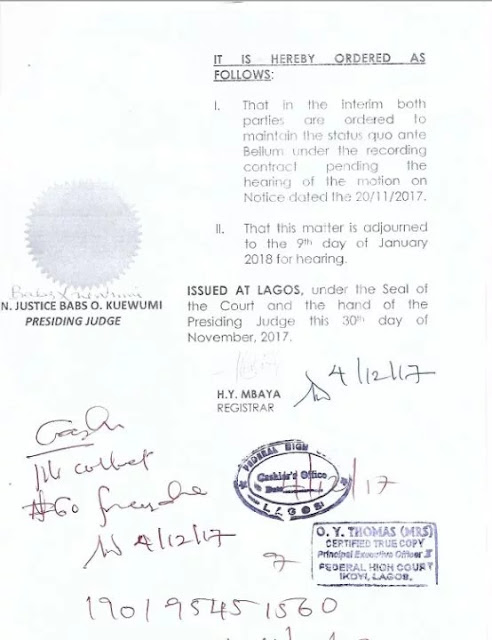 IT IS HEREBY ORDERED AS
FOLLOWS:
I. That in the interim both
parties are ordered to
maintain the status quo ante
Bellum under the recording
contract pending the
hearing of the motion on
Notice dated the 20/11/2017.
II. That this matter is adjourned
to the 9th day of January
2018 for hearing.
ISSUED AT LAGOS, under the Seal of
the Court and the hand of the
Presiding Judge this 30th day of
November, 2017.
N. JUSTICE BABS O. KUEWUMI
PRESIDING JUDGE
H.Y. MBAYA
REGISTRAR
4/12/17
Cashr
Plk collect
₦60
4/12/17
FEDERAL HIGH
Cashier's Office
Date
/17
LAGOS
O. Y. THOMAS (MRS)
CERTIFIED TRUE COPY
Principal Executive Officer II
FEDERAL HIGH COURT
IKOYI, LAGOS.
190195451560